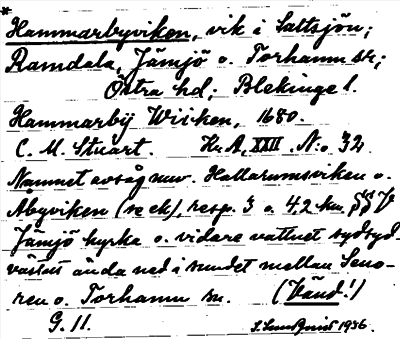 *
Hammarbyviken, vik i Saltsjön;
Ramdala, Jämjö o. Torhamn sn;
Östra hd; Blekinge l.
Hammarbÿ Wiiken, 1680.
C. M. Stuart Kr. A, XXII, N:o 32
Namnet avsåg nuv. Hallarumsviken o.
Åbyviken (se ek), resp. 3 o. 4,2 km SSV
Jämjö kyrka o. vidare vattnet sydsyd-
västut ända ned i sundet mellan Seno-
ren o. Torhamn sn. (Vänd!)
G. 11. 1936.